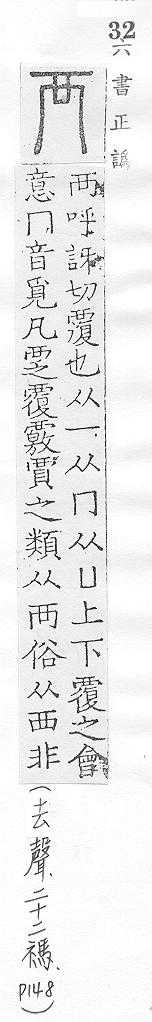 32
六書正譌
襾
襾呼訝切覆也从一从冂从凵上下覆之會
意冂音覓凡覂覆覈賈之類从襾俗从西非
(去聲、二十二禡、P148)